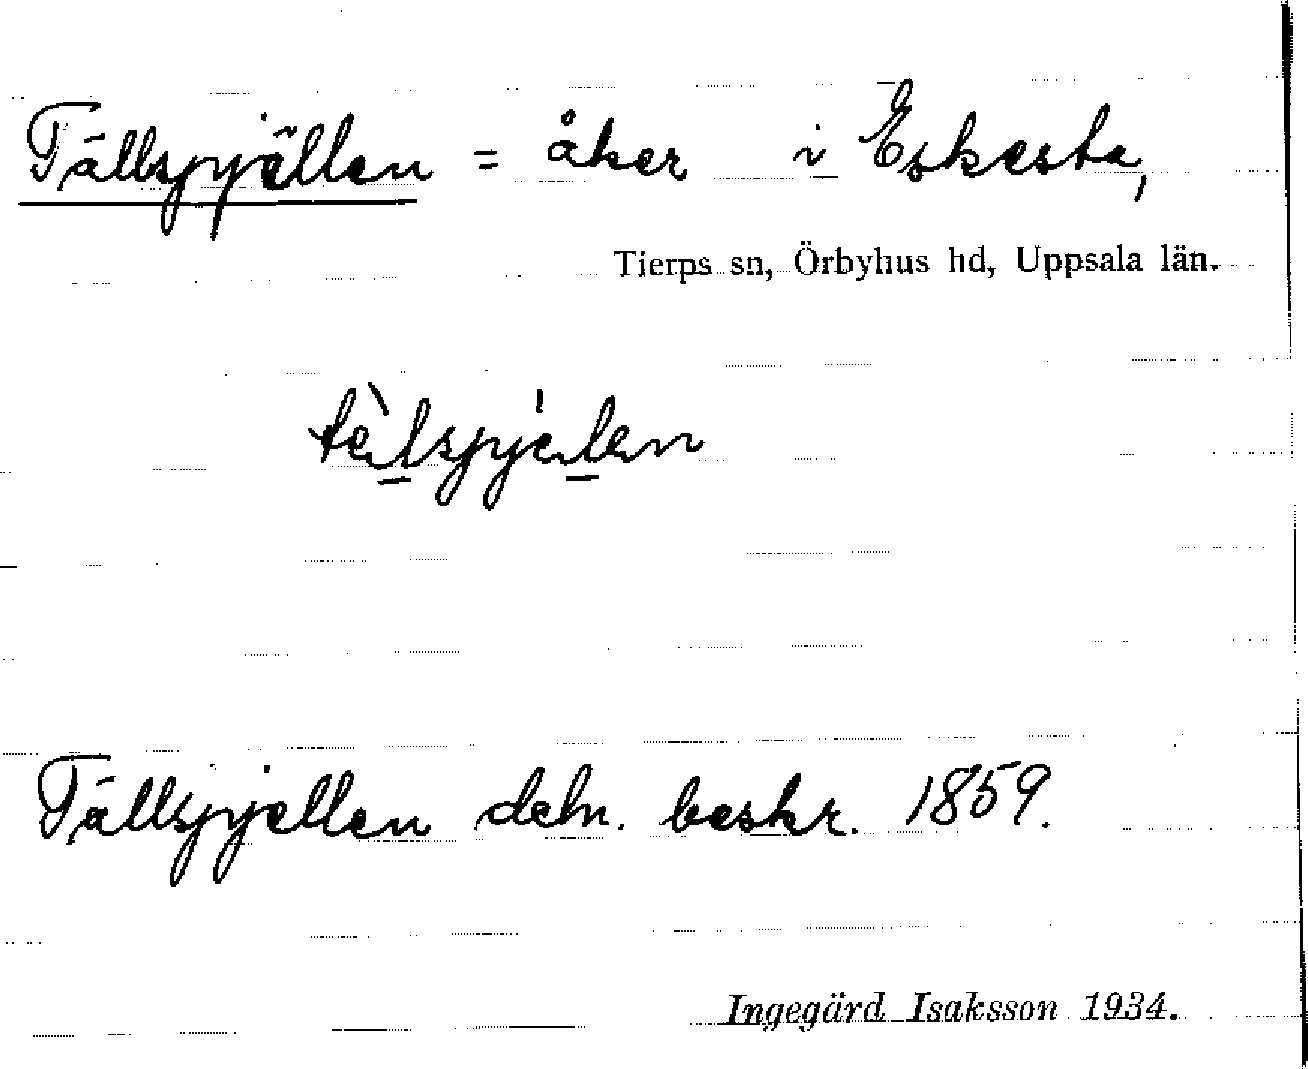 Tällspjällen = åker i Eskesta,
Tierps sn, Örbyhus hd, Uppsala län.
tèlspjèlen
Tällspjellen deln. beskr. 1859.
Ingegärd Isaksson 1934.